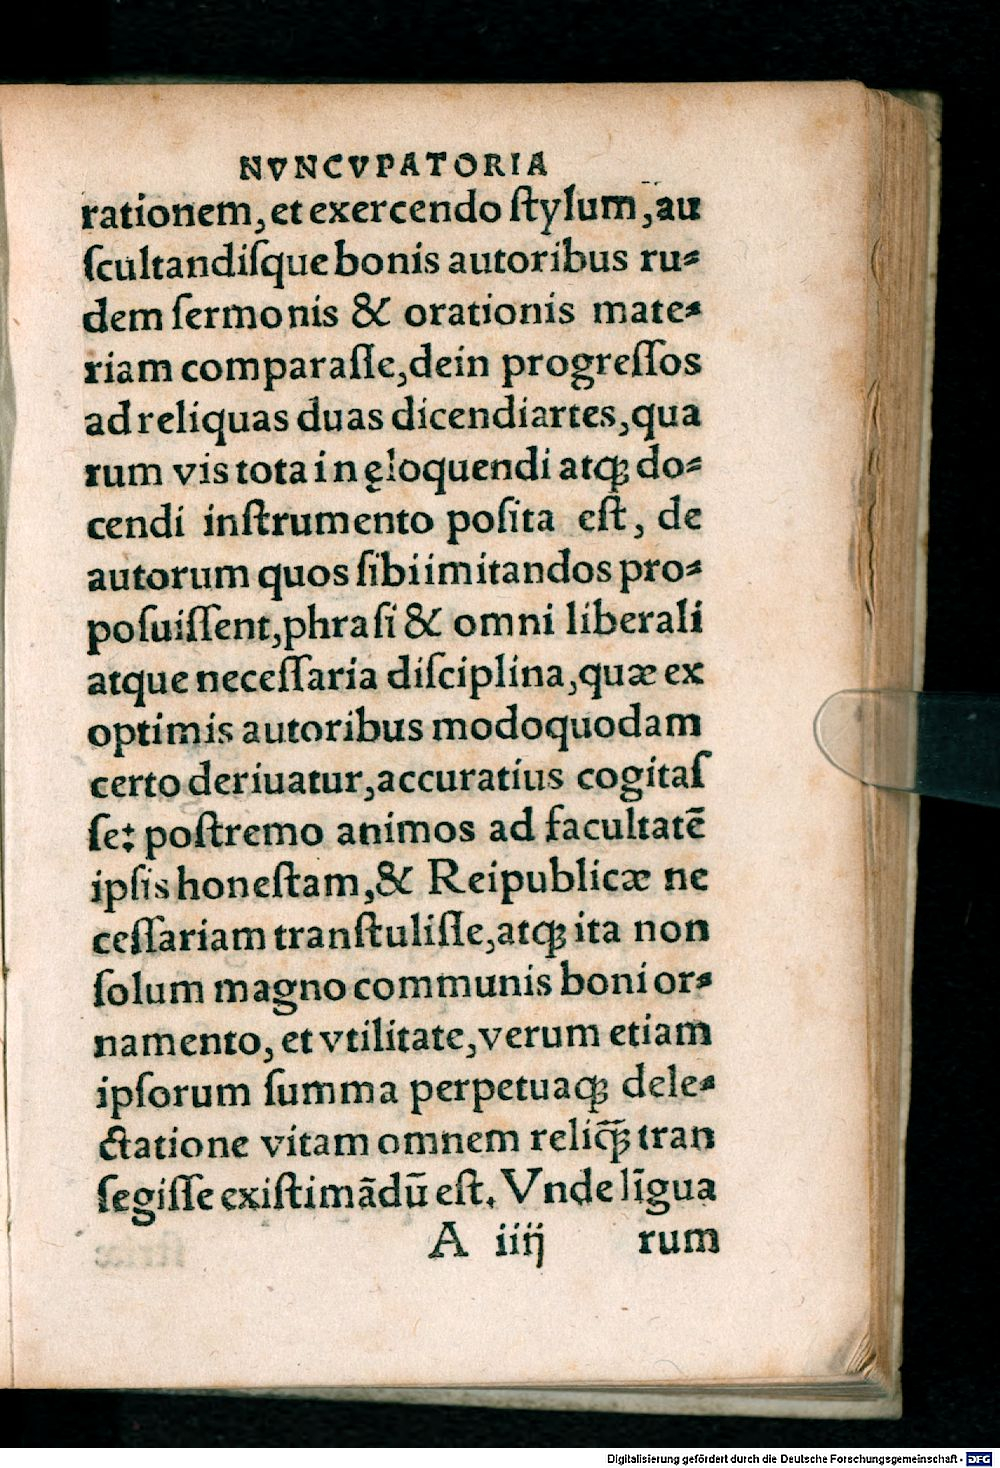 NVNCVPATORIA
rationem, et exercendo ſtylum, au
ſcultandiſque bonis autoribus ru⸗
dem ſermonis & orationis mate⸗
riam comparaſſe, dein progreſſos
ad reliquas duas dicendi artes, qua
rum vis tota in ęloquendi atqꝫ do⸗
cendi inſtrumento poſita eſt, de
autorum quos ſibi imitandos pro⸗
poſuiſſent, phraſi & omni liberali
atque neceſſaria diſciplina, quæ ex
optimis autoribus modo quodam
certo deriuatur, accuratius cogitaſ
ſe: poſtremo animos ad facultatē
ipſis honeſtam, & Reipublicæ ne
ceſſariam tranſtuliſſe, atqꝫ ita non
ſolum magno communis boni or⸗
namento, et vtilitate, verum etiam
ipſorum ſumma perpetuaqꝫ dele⸗
ctatione vitam omnem reliq̃ꝫ tran
ſegiſſe exiſtimādū eſt. Vnde lĩgua
A iiij rum
Digitalisierung gefördert durch die Deutsche Forschungsgemeinschaft - DFG